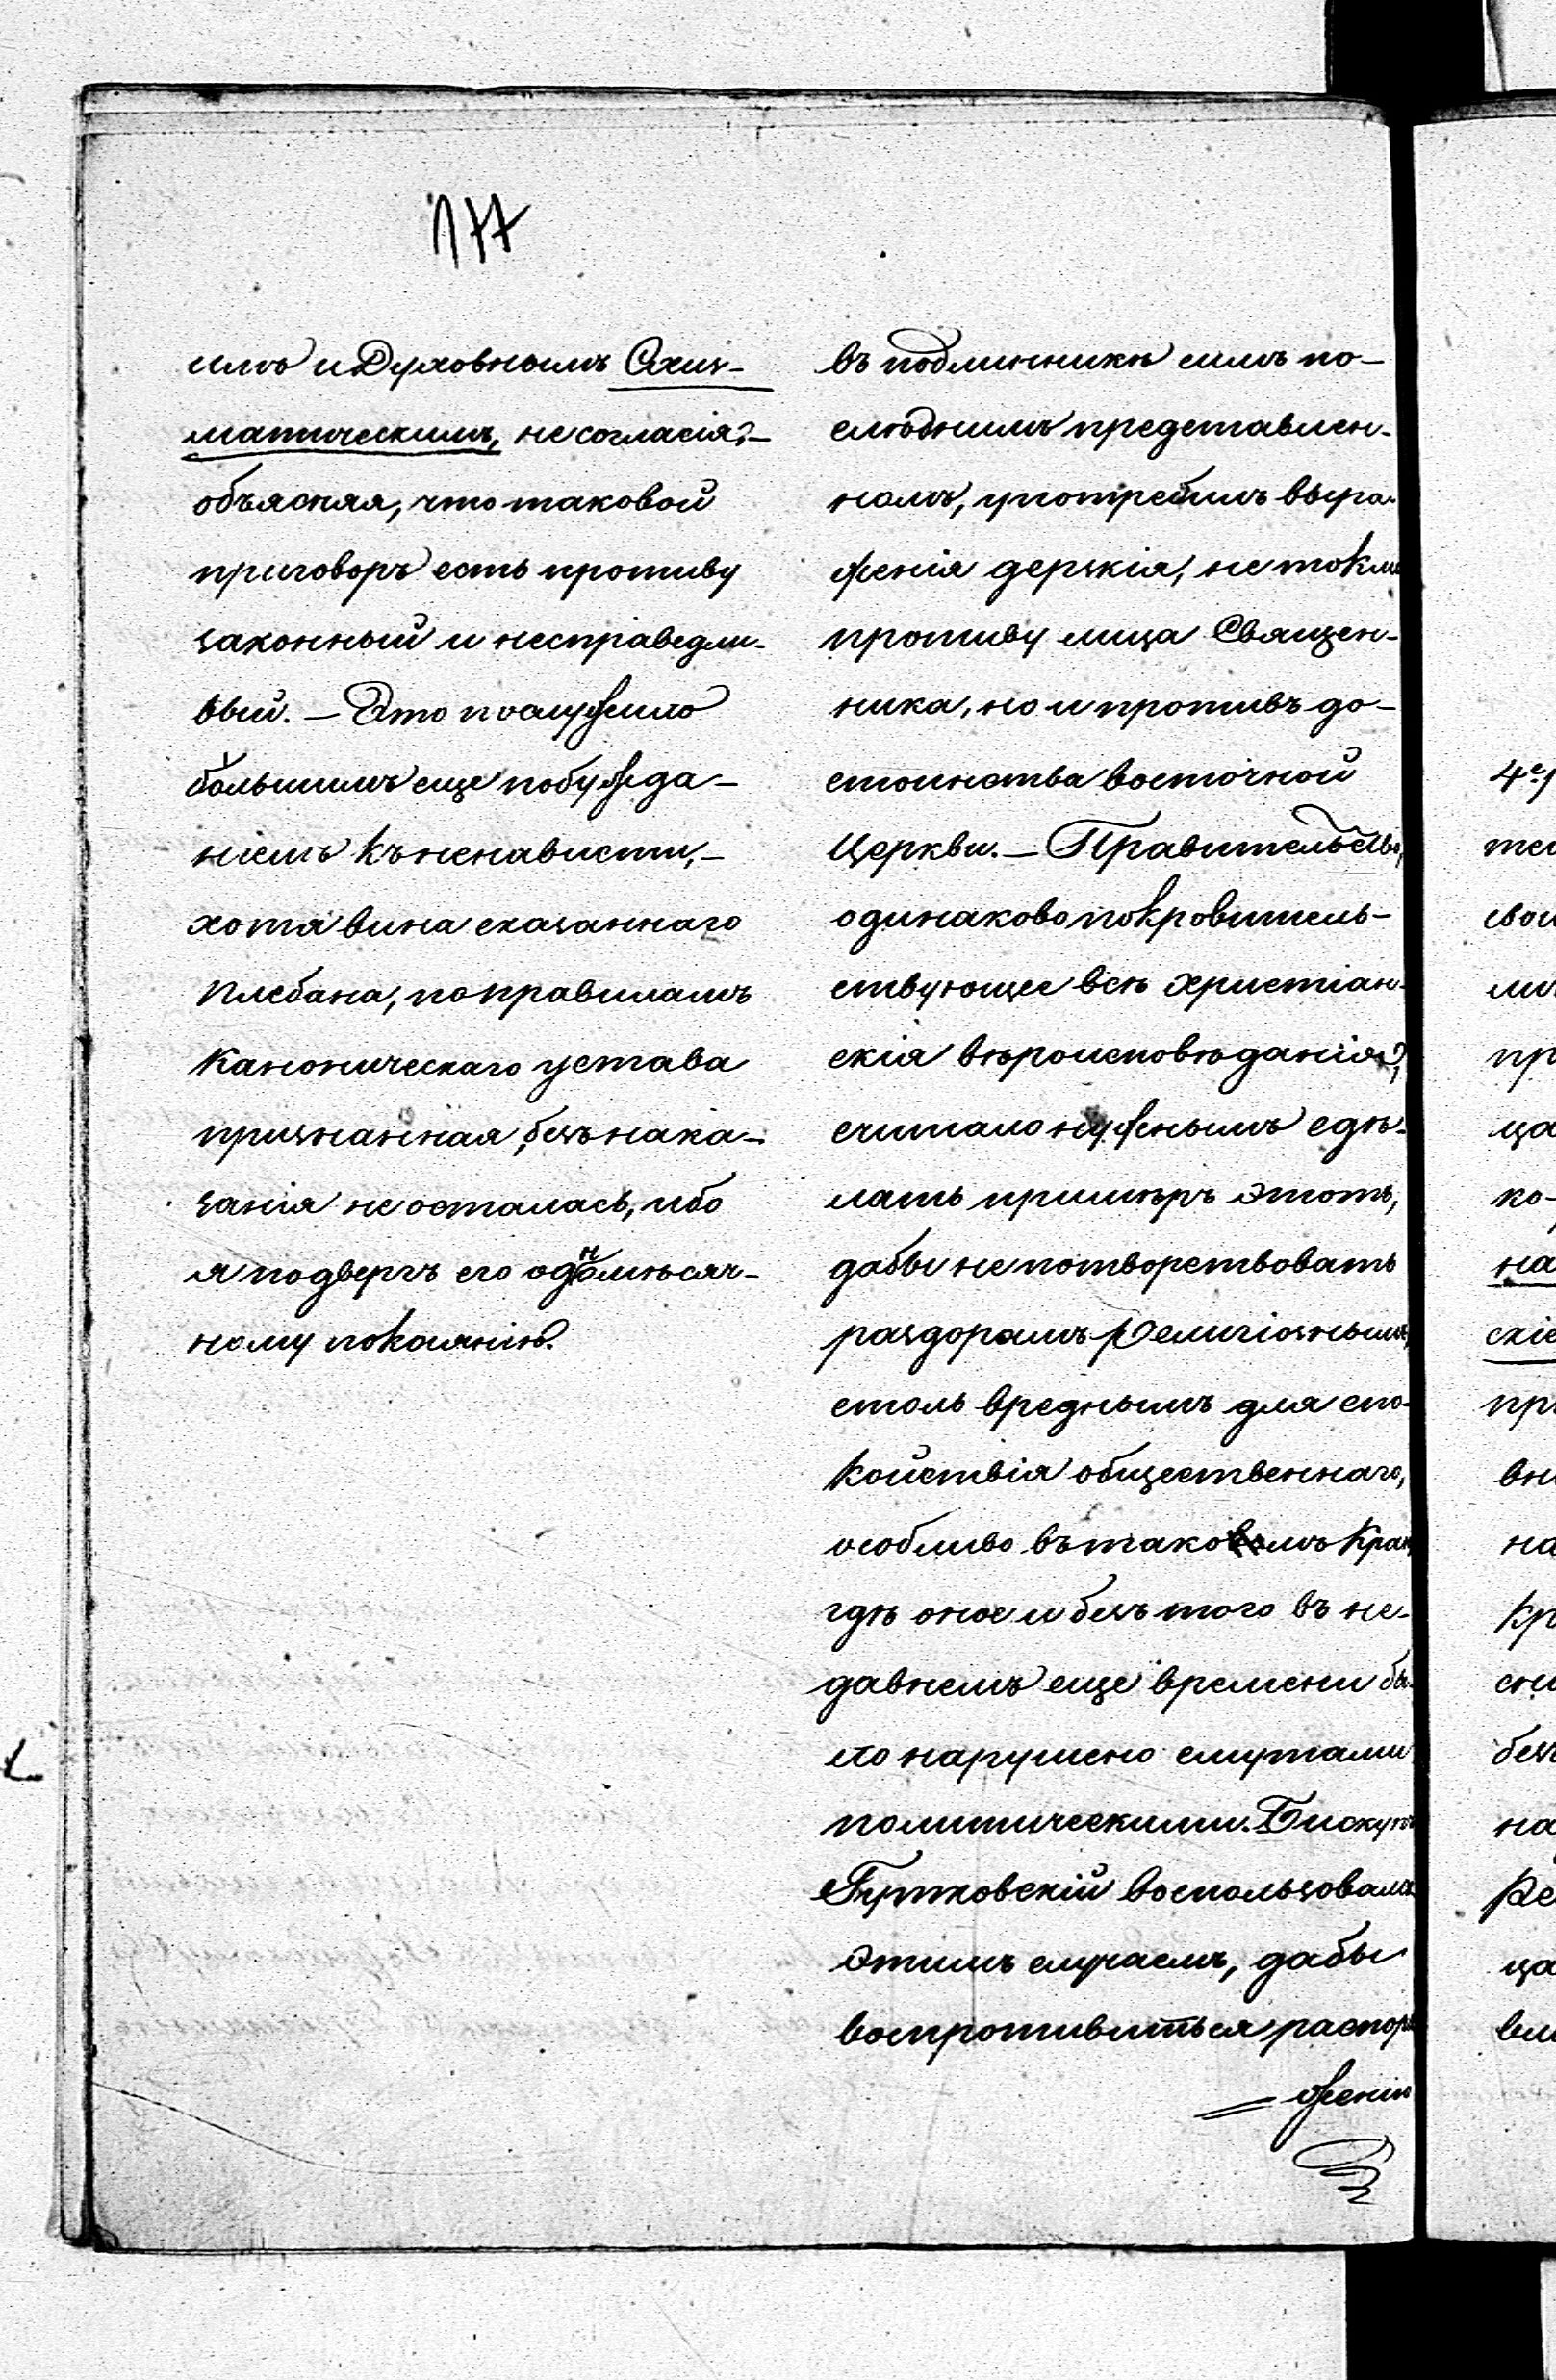 177
имъ и Духовнымъ Схиз-
матическимъ, несогласія,—
объясняя, что таковой
приговоръ есть противу
законный и несправедли-
вый. — Это послужило
большимъ еще побужда-
ніемъ къ ненависти, —
хотя вина сказаннаго
Плебана, по правиламъ
Каноническаго устава
признанная, безъ нака-
занія не осталась, ибо
я подвергъ его одномѣсяч-
ному покаянію.
въ подлинникѣ симъ по-
слѣднимъ представлен-
номъ, употребилъ выра-
женія дерзкія, не токмо
противу лица Священ-
ника, но и противъ до-
стоинства восточной
Церкви. — Правительство,
одинаково покровитель-
ствующее всѣ христіан-
скія вѣроисповѣданія,
считало нужнымъ сдѣ-
лать примѣръ этотъ,
дабы не потворствовать
раздорамъ Религіознымъ,
столь вреднымъ для спо-
койствія общественнаго,
особливо въ такомъ Краѣ,
гдѣ оное и безъ того въ не-
давнемъ еще времени бы-
ло нарушено смутами
политическими. Бискупъ
Гутковскій воспользовался
этимъ случаемъ, дабы
воспротивиться распоря
= женію
4е.
тел
свои
ли
пр
ца
ко-
на
скіе
пр
вн
на
Кр
сн
без
на
Ре
ца
вл